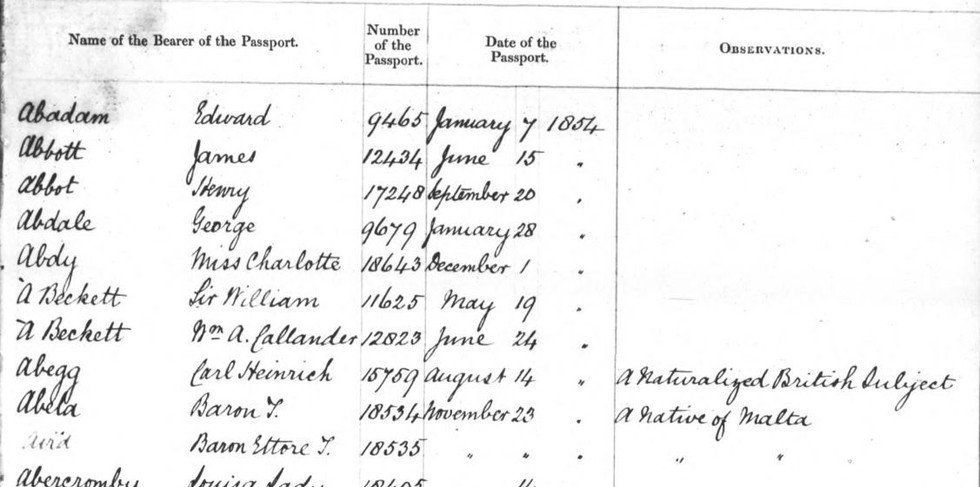 Name of the Bearer of the Passport. Number of the Passport. Date of the Passport. OBSERVATIONS.
Abadam Edward 9465 January 7 1854
Abbott James 12434 June 15 "
Abbot Henry 17248 September 20 "
Abdale George 9679 January 28 "
Abdy Miss Charlotte 18643 December 1 "
A Beckett Sir William 11625 May 19 "
A Beckett Wm A. Callander 12823 June 24 "
Abegg Carl Heinrich 15759 August 14 " A Naturalized British Subject
Abela Baron T. 18534 November 23 " A Native of Malta
Baron Ettore T. 18535 " " " " "
Abercromby Louisa Lady